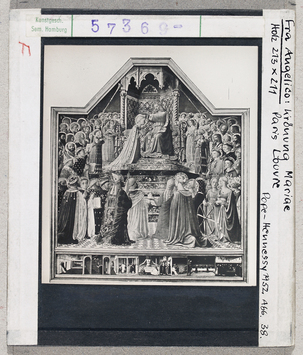 Kunstgesch.
Sem. Hamburg
57360
Fra Angelico: Krönung Mariae
Holz 213 x 211 Paris Louvre
Pope-Hennessy 1952. Abb. 38.